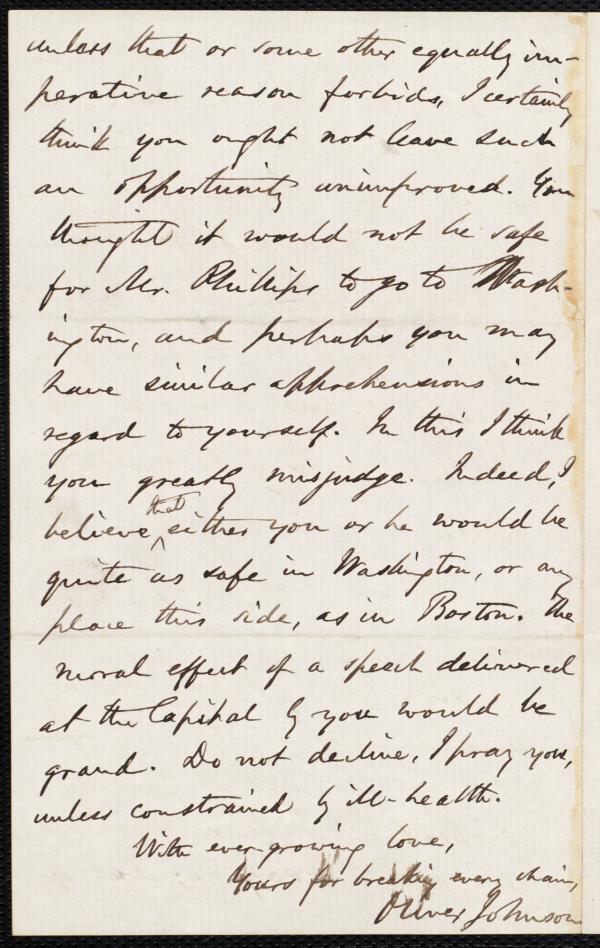 unless that or some other equally im-
perative reason forbids, I certainly
think you ought not leave such
an opportunity unimproved. You
thought it would not be safe
for Mr. Phillips to go to Wash-
ington, and perhaps you may
have similar apprehensions in
regard to yourself. In this I think
you greatly misjudge. Indeed, I
believe that either you or he would be
quite as safe in Washington, or any
place this side, as in Boston. The
moral effect of a speech delivered
at the Capital by you would be
grand. Do not decline, I pray you,
unless constrained by ill-health.
With ever-growing love,
Yours for breaking every chain,
Oliver Johnson